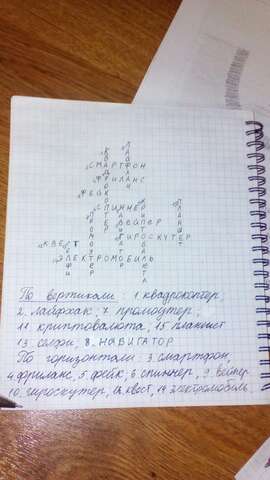 СМАРТФОН
ФРИЛАНС
ФЕЙК
СПИННЕР
ВЕЙПЕР
ГИРОСКУТЕР
КВЕСТ
ЭЛЕКТРОМОБИЛЬ
По вертикали: 1. квадрокоптер,
2. лайфхак, 7 промоутер,
11 криптовалюта, 15 планшет
13 селфи, 8. НАВИГАТОР
По горизонтали: 3. смартфон,
4. фриланс, 5. фейк, 6 спиннер, 9. вейпер
10. гироскутер, 12. квест, 14 электромобиль.